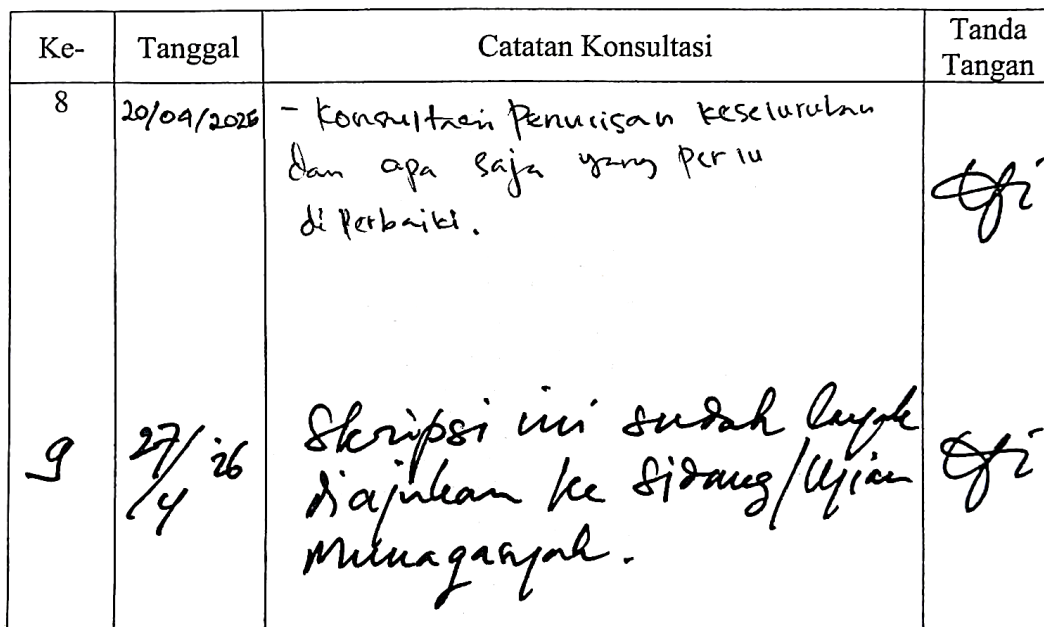 Ke- Tanggal Catatan Konsultasi Tanda Tangan
8 20/04/2026 - Konsultasi Penulisan keseluruhan
dan apa saja yang perlu
diperbaiki.
9 27/4 '26 Skripsi ini sudah layak
diajukan ke Sidang/Ujian
Munaqasyah.